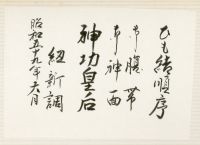 ひも結順序
御腹帯
御神面
神功皇后
紐新調
昭和五十九年六月